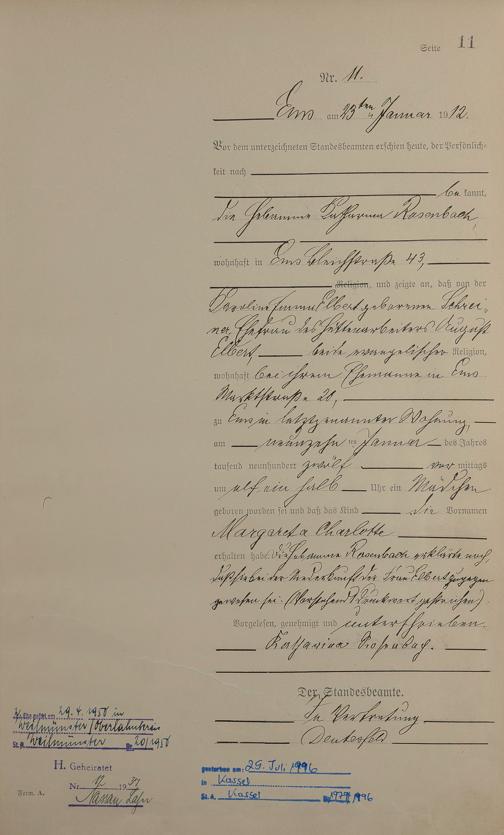 Seite 11
Nr. 11.
Ems am 23ten Januar 1912.
Vor dem unterzeichneten Standesbeamten erschien heute, der Persönlich-
keit nach
bekannt,
die Hebamme Katharina Rosenbach,
wohnhaft in Ems Bleichstraße 43,
Religion, und zeigte an, daß von der
Karoline Emma Elbert geborenen Schrei-
ner, Ehefrau des Hüttenarbeiters August
Elbert beide evangelischer Religion,
wohnhaft bei ihrem Ehemanne in Ems
Marktstraße 20,
zu Ems in letztgenannter Wohnung,
am neunzehnten Januar des Jahres
tausend neunhundert zwölf vormittags
um elf ein halb Uhr ein Mädchen
geboren worden sei und daß das Kind die Vornamen
Margareta Charlotte
erhalten habe. Die Hebamme Rosenbach erklärte noch,
daß sie bei der Niederkunft der Frau Elbert zugegen
gewesen sei. (Vorstehend 1 Druckwort gestrichen)
Vorgelesen, genehmigt und unterschrieben.
Katharina Rosenbach.
Der Standesbeamte.
In Vertretung
29.4.1950 in
Weilmünster/Oberlahnkreis
St. A. Weilmünster Nr. 20/1950
H. Geheiratet
Nr. 12 1937
Nassau Lahn
Form. A.
gestorben am: 29. Juli 1996
in Kassel
St. A. Kassel Nr. 1996